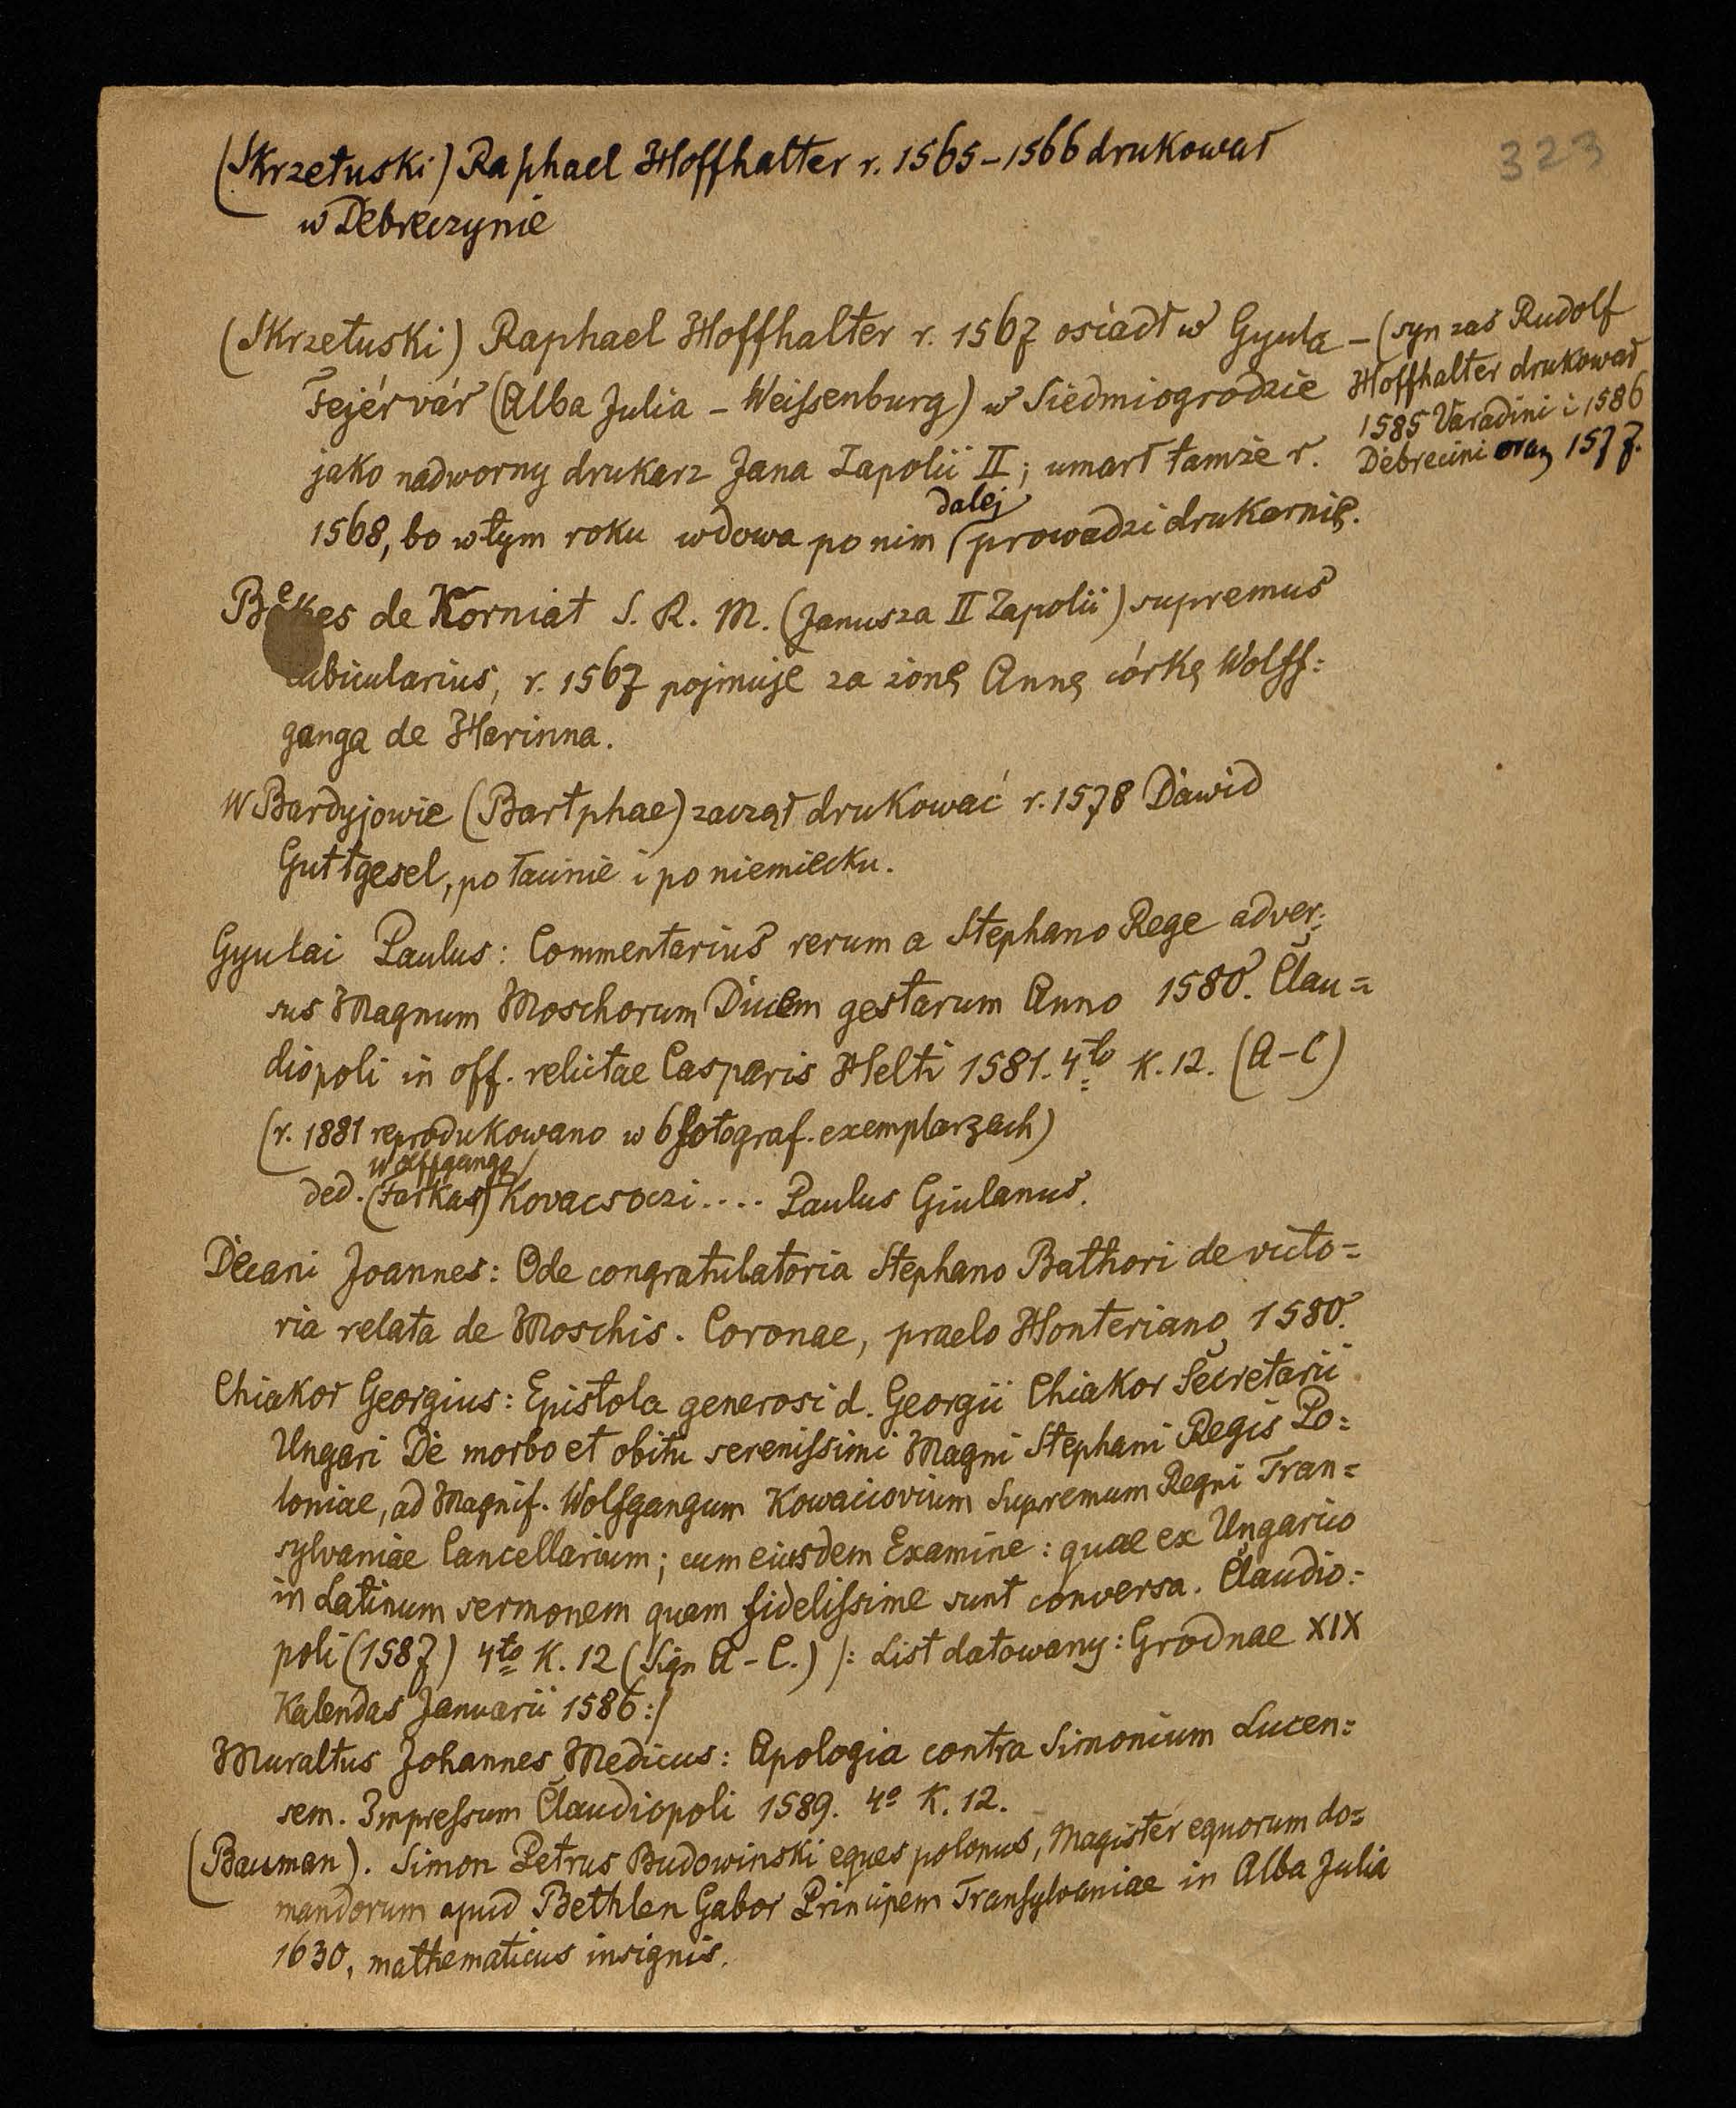 323
(Skrzetuski) Raphael Hoffhalter r. 1565–1566 drukował
w Debreczynie
(Skrzetuski) Raphael Hoffhalter r. 1567 osiadł w Gyula
Fejérvár (Alba Julia – Weiſsenburg) w Siedmiogrodzie
jako nadworny drukarz Jana Zapolii II; umarł tamże r.
– (syn zaś Rudolf
Hoffhalter drukował
1585 Varadini i 1586
Debrecini oraz 1577.
dalej
1568, bo w tym roku wdowa po nim prowadzi drukarnię.
Bekes de Korniat S. R. M. (Janusza II Zapolii) supremus
cubicularius, r. 1567 pojmuje za żonę Annę córkę Wolff=
ganga de Harinna.
W Bardyjowie (Bartphae) zaczął drukować r. 1578 Dawid
Guttgesel, po łacinie i po niemiecku.
Gyulai Paulus: Commentarius rerum a Stephano Rege adver=
sus Magnum Moschorum Ducem gestarum Anno 1580. Clau=
diopoli in off. relictae Casparis Helti 1581. 4to K. 12. (A–C)
(r. 1881 reprodukowano w 6 fotograf. exemplarzach)
Wolffgango
ded. (Farkas) Kovacsoczi.... Paulus Giulanus.
Decani Joannes: Ode congratulatoria Stephano Bathori de victo=
ria relata de Moschis. Coronae, praelo Honteriano 1580.
Chiakor Georgius: Epistola generosi d. Georgii Chiakor Secretarii
Ungari De morbo et obitu sereniſsimi Magni Stephani Regis Po=
loniae, ad Magnif. Wolfgangum Kowaciovium Supremum Regni Tran=
sylvaniae Cancellarium; cum eiusdem Examine: quae ex Ungarico
in Latinum sermonem quam fideliſsime sunt conversa. Claudio=
poli (1587) 4to K. 12 (Sign A–C.) /: List datowany: Grodnae XIX
Kalendas Januarii 1586:/
Muraltus Johannes Medicus: Apologia contra Simonium Lucen=
sem. Impreſsum Claudiopoli 1589. 4o K. 12.
(Bauman). Simon Petrus Budowinski eques polonus, Magister equorum do=
mandorum apud Bethlen Gabor Principem Tranſylvaniae in Alba Julia
1630, mathematicus insignis.